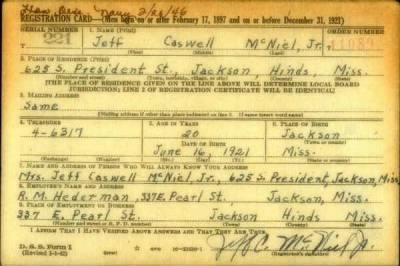 Navy 2/26/46
REGISTRATION CARD—(Men born on or after February 17, 1897 and on or before December 31, 1921)
SERIAL NUMBER 1. NAME (Print)
221 Jeff Caswell McNiel, Jr.
(First) (Middle) (Last)
2. PLACE OF RESIDENCE (Print)
625 S. President St., Jackson, Hinds, Miss.
(Number and street) (Town, township, village, or city) (County) (State)
[THE PLACE OF RESIDENCE GIVEN ON THE LINE ABOVE WILL DETERMINE LOCAL BOARD
JURISDICTION; LINE 2 OF REGISTRATION CERTIFICATE WILL BE IDENTICAL]
3. MAILING ADDRESS
Same
[Mailing address if other than place indicated on line 2. If same insert word same]
4. TELEPHONE 5. AGE IN YEARS 6. PLACE OF BIRTH
4-6317 20 Jackson
DATE OF BIRTH (Town or county)
June 16, 1921 Miss.
(Exchange) (Number) (Mo.) (Day) (Yr.) (State or country)
7. NAME AND ADDRESS OF PERSON WHO WILL ALWAYS KNOW YOUR ADDRESS
Mrs. Jeff Caswell McNiel, Jr., 625 S. President, Jackson, Miss.
8. EMPLOYER'S NAME AND ADDRESS
R. M. Hederman, 337 E. Pearl St. Jackson, Miss.
9. PLACE OF EMPLOYMENT OR BUSINESS
337 E. Pearl St. Jackson Hinds Miss.
(Number and street or R. F. D. number) (Town) (County) (State)
I AFFIRM THAT I HAVE VERIFIED ABOVE ANSWERS AND THAT THEY ARE TRUE.
D. S. S. Form 1
(Revised 1-1-42) Jeff C. McNiel Jr.